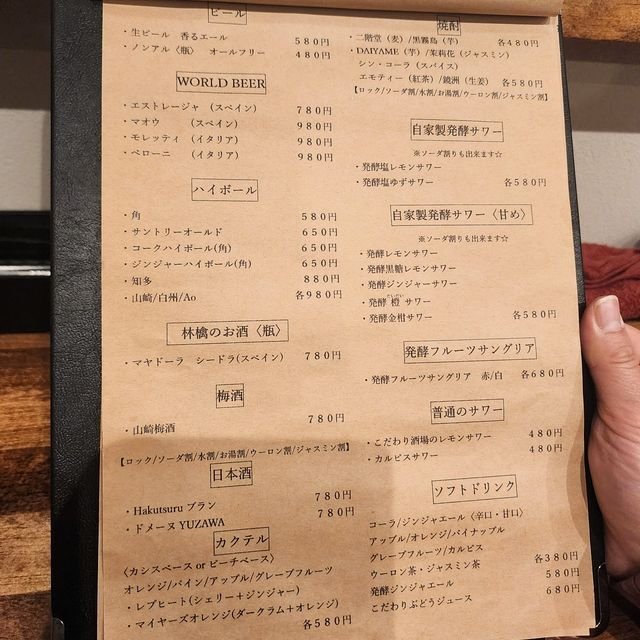 ビール
・生ビール 香るエール 580円
・ノンアル〈瓶〉 オールフリー 480円
WORLD BEER
・エストレージャ (スペイン) 780円
・マオウ (スペイン) 980円
・モレッティ (イタリア) 980円
・ペローニ (イタリア) 980円
ハイボール
・角 580円
・サントリーオールド 650円
・コークハイボール(角) 650円
・ジンジャーハイボール(角) 650円
・知多 880円
・山崎/白州/Ao 各980円
林檎のお酒〈瓶〉
・マヤドーラ シードラ(スペイン) 780円
梅酒
・山崎梅酒 780円
【ロック/ソーダ割/水割/お湯割/ウーロン割/ジャスミン割】
日本酒
・Hakutsuru ブラン 780円
・ドメーヌ YUZAWA 780円
カクテル
〈カシスベース or ピーチベース〉
オレンジ/パイン/アップル/グレープフルーツ
・レブヒート(シェリー+ジンジャー)
・マイヤーズオレンジ(ダークラム+オレンジ)
各580円
焼酎
・二階堂（麦）/黒霧島（芋） 各480円
・DAIYAME（芋）/茉莉花（ジャスミン）
シン・コーラ（スパイス）
エモティー（紅茶）/鏡洲（生姜） 各580円
【ロック/ソーダ割/水割/お湯割/ウーロン割/ジャスミン割】
自家製発酵サワー
※ソーダ割りも出来ます☆
・発酵塩レモンサワー
・発酵塩ゆずサワー 各580円
自家製発酵サワー〈甘め〉
※ソーダ割りも出来ます☆
・発酵レモンサワー
・発酵黒糖レモンサワー
・発酵ジンジャーサワー
・発酵 橙 サワー
・発酵金柑サワー 各580円
発酵フルーツサングリア
・発酵フルーツサングリア 赤/白 各680円
普通のサワー
・こだわり酒場のレモンサワー 480円
・カルピスサワー 480円
ソフトドリンク
コーラ/ジンジャエール〈辛口・甘口〉
アップル/オレンジ/パイナップル
グレープフルーツ/カルピス
ウーロン茶・ジャスミン茶 各380円
発酵ジンジャエール 580円
こだわりぶどうジュース 680円